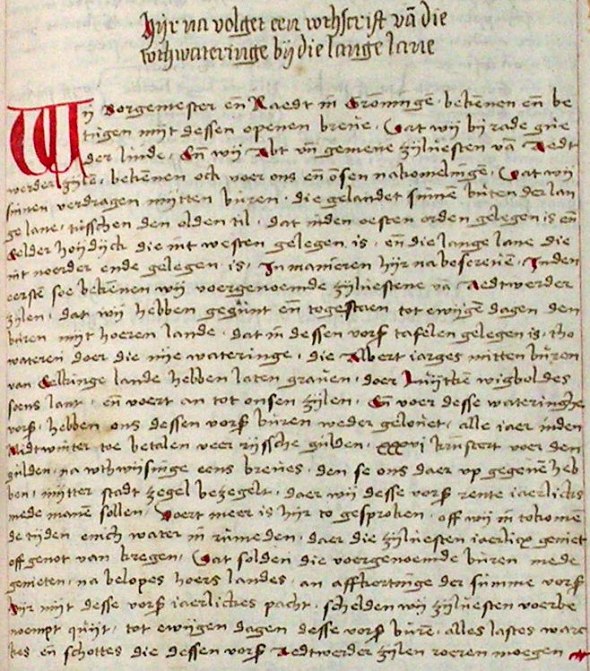 Hijr na volget een wthscrift vā die
wthwateringe bij die lange lane
Wij Borgemester eñ Raedt in Groningē bekēnen eñ be
tugen mijt dessen openen breue Dat wij bij rade gue
der linde Eñ wij Abt vñ gemene zijluesten vā Aedt
werder zijlē bekēnen ock voer ons eñ onsen nakomelingē Dat wij
sinnen verdragen mijtten buren die gelandet sinnen buten der lan
ge lane tusschen den olden til dat inden oesten orden gelegen is eñ
Gelder hoijdijck die int westen gelegen is eñ die lange lane die
int noerder ende gelegen is In manieren hijr na bescreuē Inden
eersten soe bekēnen wij voergenoemde zijluestene vā Aedtwerder
zijlen dat wij hebben gegunt eñ togestaen tot ewijgē dagen den
buren mijt hoeren lande dat in dessen vorß tafelen gelegen is tho
wateren doer die nije wateringe die Albert iarges mitten buren
van Selkinge lande hebben laten grauen doer wigboldes
soens lant eñ voert an tot onsen zijlen Eñ voer desse wateringhe
vorß hebben ons dessen vorß buren weder gelouet alle iaer inden
Midtwinter toe betalen veer rijssche gulden xxxvi krūstert voer den
gulden na wthwijsinge eens breues den se ons daer vp gegeuē heb
ben mijtter stadt zegel bezegelt daer wij desse vorß rente iaerlicks
mede manē sollen Voert meer is hijr to gesproken off wij in tokomē
de tijden enich water in rumeden daer die zijluesten iaerlicx geniet
off genot van kregen Dat solden die voergenoemde buren mede
genieten na belopes hoers landes an affkortinge der summe vorß
Hijr mijt desse vorß iaerlickes pacht schelden wij zijluesten voerbe
noempt quijt tot ewijgen dagen desse vorß burē alles lastes warc
kes eñ schottes die dessen vorß Aedtwerder zijlen roeren moegen